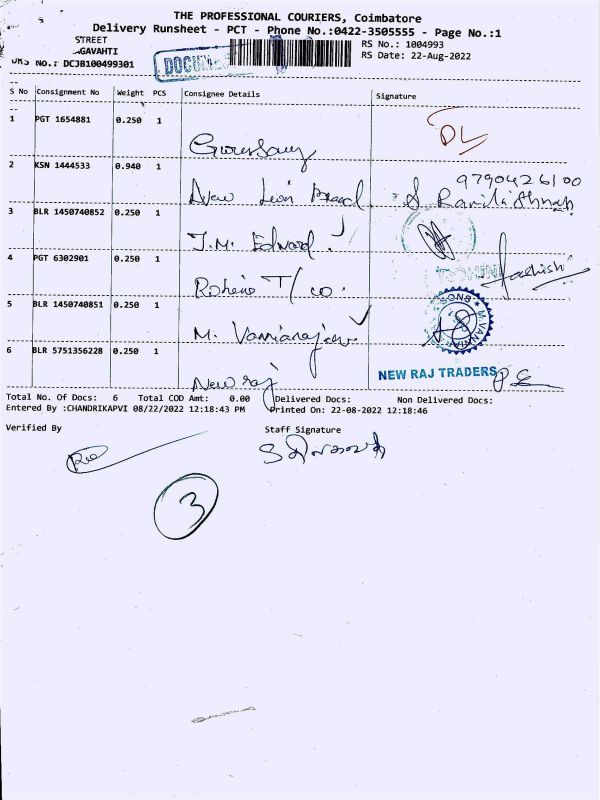 THE PROFESSIONAL COURIERS, Coimbatore
Delivery Runsheet - PCT - Phone No.:0422-3505555 - Page No.:1
STREET
GAVAHTI
RS No.: 1004993
RS Date: 22-Aug-2022
No.: DCJB100499301
S No Consignment No Weight PCS Consignee Details Signature
1 PGT 1654881 0.250 1
DL
2 KSN 1444533 0.940 1
9790426100
New
3 BLR 1450740852 0.250 1
J.M. Edward
4 PGT 6302901 0.250 1
T/co.
5 BLR 1450740851 0.250 1
M.
6 BLR 5751356228 0.250 1
NEW RAJ TRADERS
New raj
Total No. Of Docs: 6 Total COD Amt: 0.00 Delivered Docs: Non Delivered Docs:
Entered By :CHANDRIKAPVI 08/22/2022 12:18:43 PM Printed On: 22-08-2022 12:18:46
Verified By Staff Signature
3